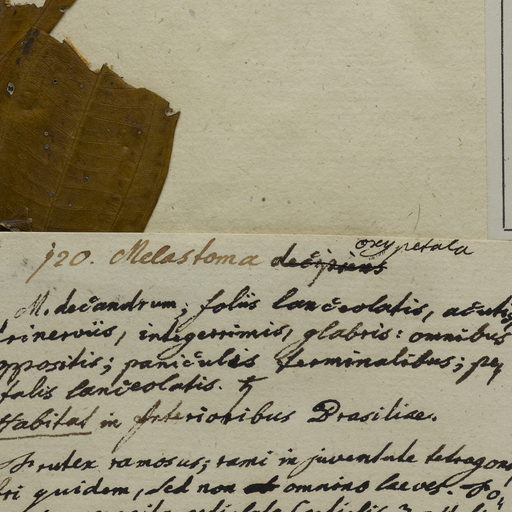 oxypetala
120. Melastoma decipiens
M. decandrum; foliis lanceolatis, acutis
trinerviis, integerrimis, glabris: omnibus
oppositis; paniculis terminalibus; pe,
talis lanceolatis. ♄
Habitat in interioribus Brasiliae.
Frutex ramosus; rami in juventute tetragoni
bri quidem, sed non omnino laeves. Fo,